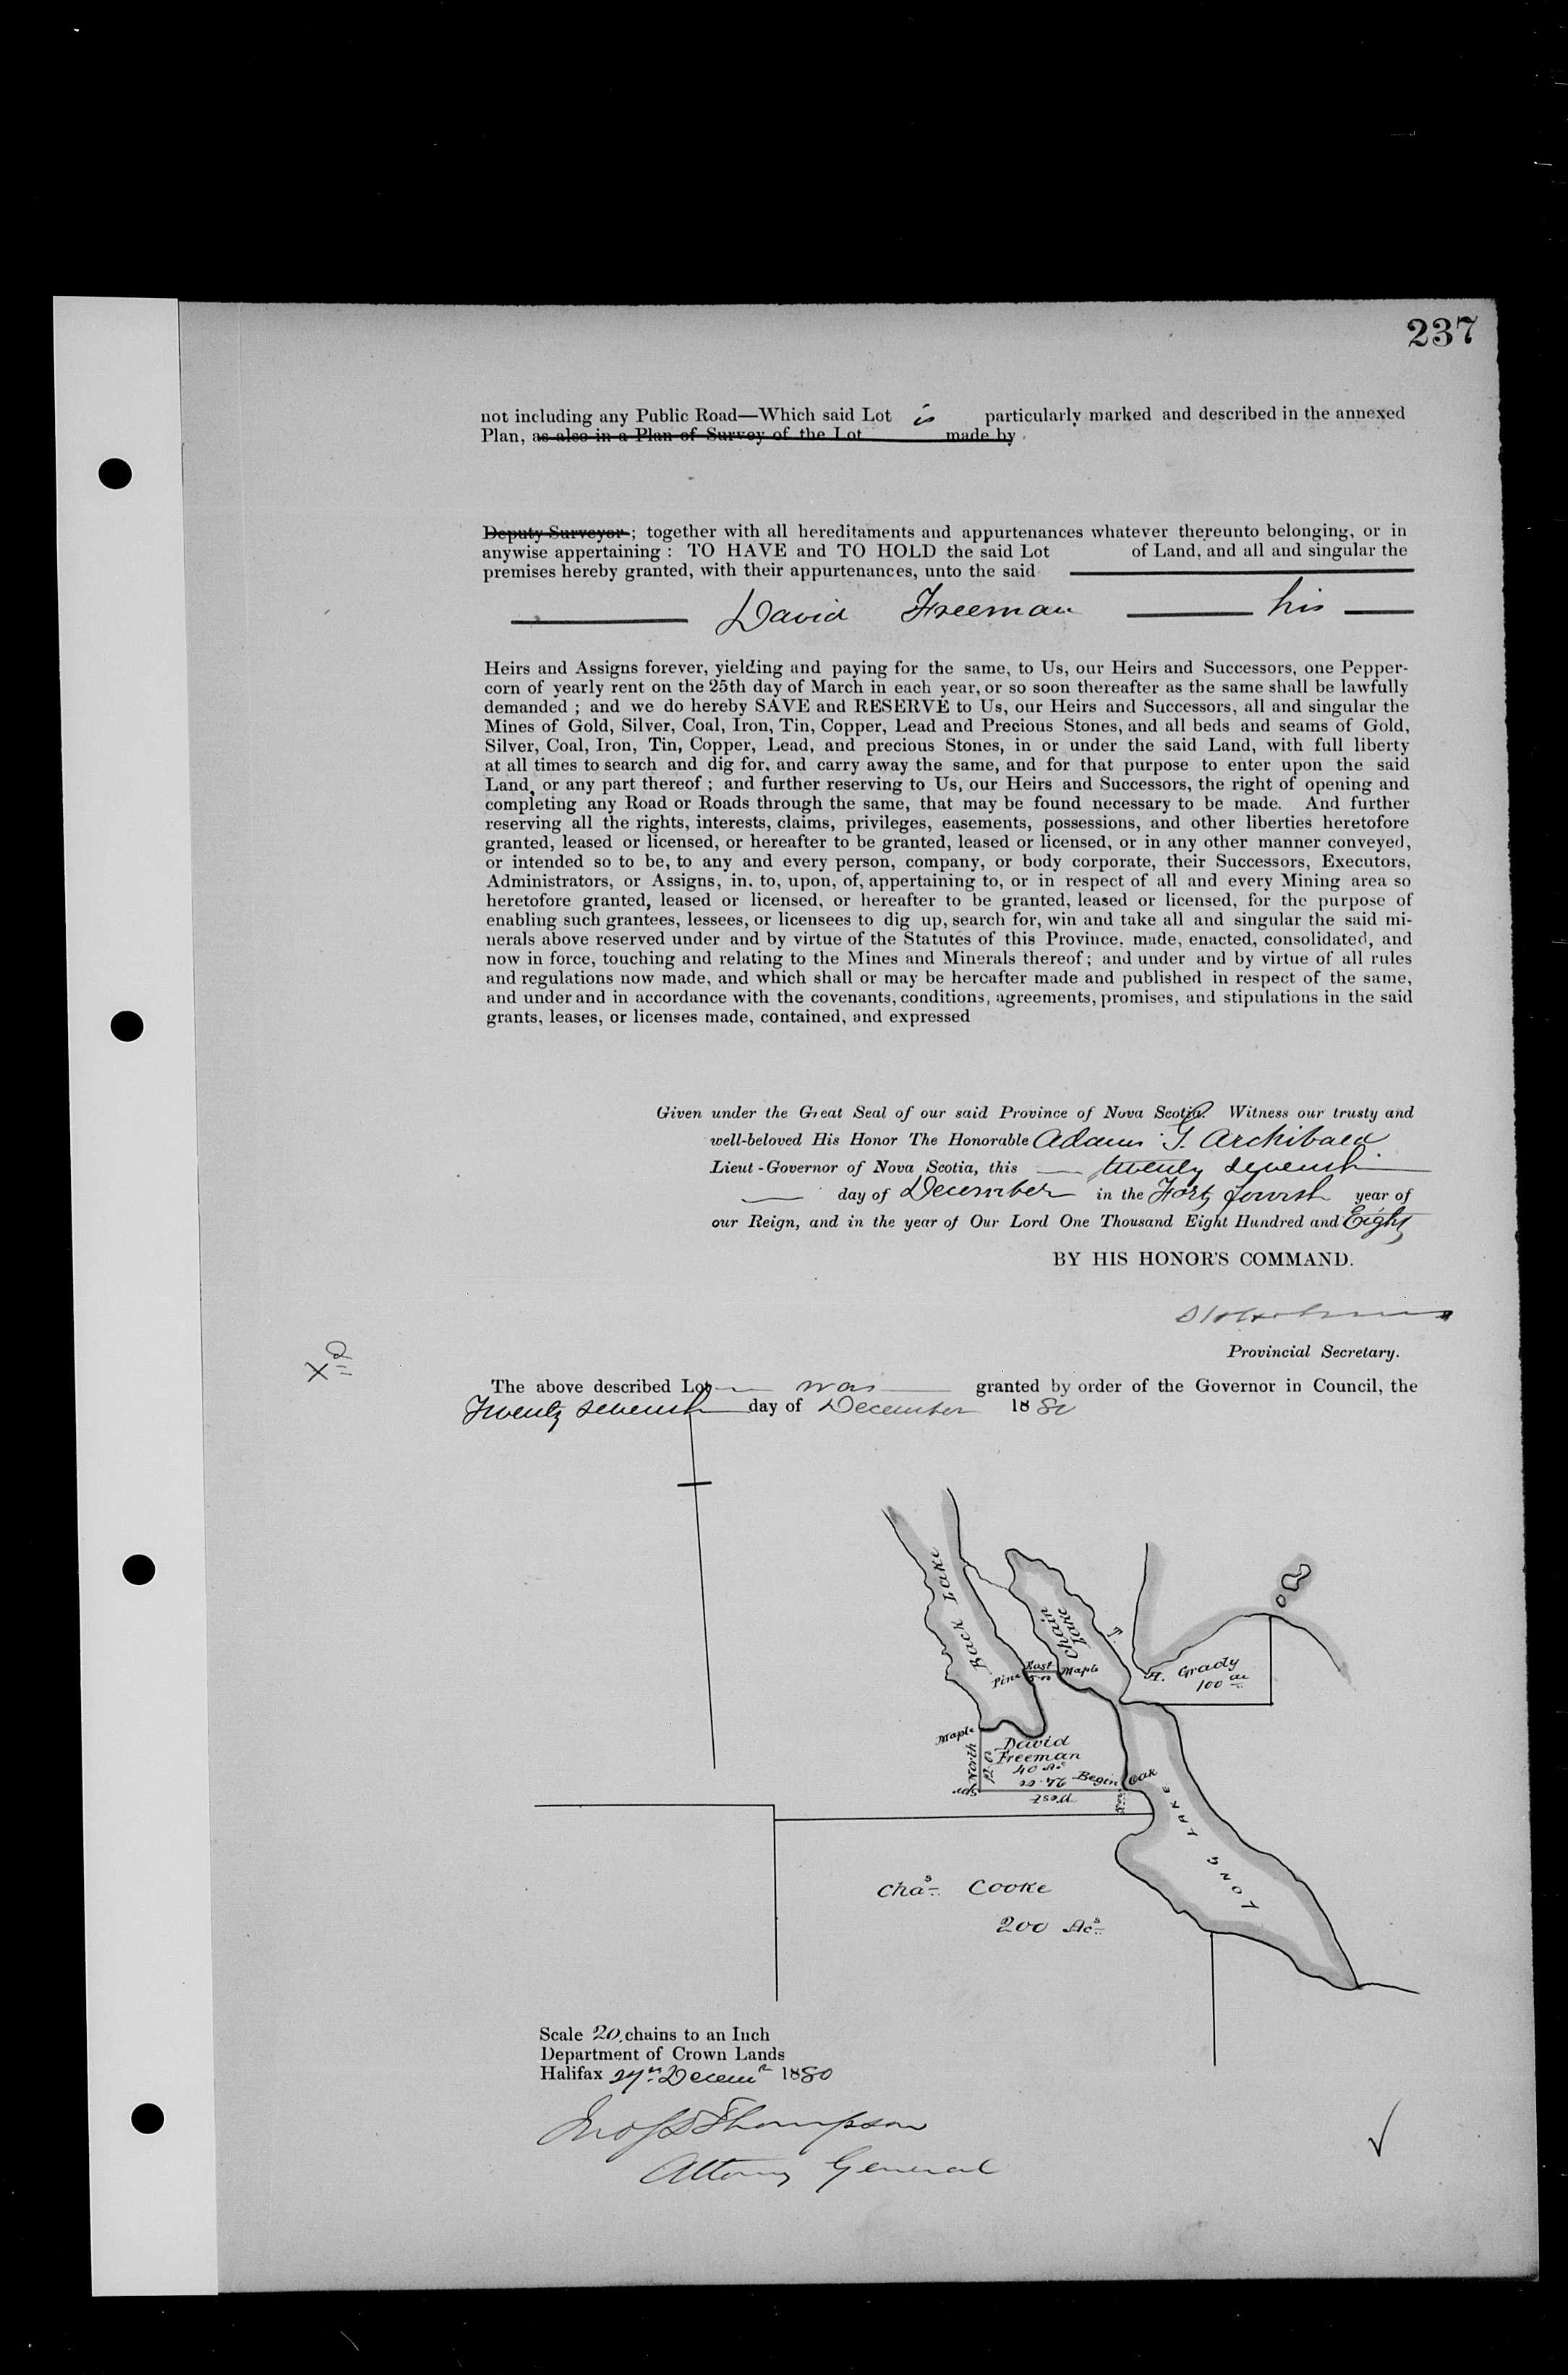 237
not including any Public Road—Which said Lot is particularly marked and described in the annexed
Plan, as also in a Plan of Survey of the Lot made by
Deputy Surveyor; together with all hereditaments and appurtenances whatever thereunto belonging, or in
anywise appertaining : TO HAVE and TO HOLD the said Lot of Land, and all and singular the
premises hereby granted, with their appurtenances, unto the said
David Freeman his
Heirs and Assigns forever, yielding and paying for the same, to Us, our Heirs and Successors, one Pepper-
corn of yearly rent on the 25th day of March in each year, or so soon thereafter as the same shall be lawfully
demanded ; and we do hereby SAVE and RESERVE to Us, our Heirs and Successors, all and singular the
Mines of Gold, Silver, Coal, Iron, Tin, Copper, Lead and Precious Stones, and all beds and seams of Gold,
Silver, Coal, Iron, Tin, Copper, Lead, and precious Stones, in or under the said Land, with full liberty
at all times to search and dig for, and carry away the same, and for that purpose to enter upon the said
Land, or any part thereof ; and further reserving to Us, our Heirs and Successors, the right of opening and
completing any Road or Roads through the same, that may be found necessary to be made. And further
reserving all the rights, interests, claims, privileges, easements, possessions, and other liberties heretofore
granted, leased or licensed, or hereafter to be granted, leased or licensed, or in any other manner conveyed,
or intended so to be, to any and every person, company, or body corporate, their Successors, Executors,
Administrators, or Assigns, in, to, upon, of, appertaining to, or in respect of all and every Mining area so
heretofore granted, leased or licensed, or hereafter to be granted, leased or licensed, for the purpose of
enabling such grantees, lessees, or licensees to dig up, search for, win and take all and singular the said mi-
nerals above reserved under and by virtue of the Statutes of this Province, made, enacted, consolidated, and
now in force, touching and relating to the Mines and Minerals thereof ; and under and by virtue of all rules
and regulations now made, and which shall or may be hereafter made and published in respect of the same,
and under and in accordance with the covenants, conditions, agreements, promises, and stipulations in the said
grants, leases, or licenses made, contained, and expressed
Given under the Great Seal of our said Province of Nova Scotia. Witness our trusty and
well-beloved His Honor The Honorable Adams G. Archibald
Lieut-Governor of Nova Scotia, this twenty seventh
day of December in the Forty fourth year of
our Reign, and in the year of Our Lord One Thousand Eight Hundred and Eighty
BY HIS HONOR'S COMMAND.
Provincial Secretary.
The above described Lot was granted by order of the Governor in Council, the
Twenty seventh day of December 1880
Back Lake
Chain Lake
Pine East Maple
H. Grady
100 ac
Maple
North
David
Freeman
40 Ac
Begin Oak
West
Long Lake
Chas Cooke
200 Acs
Scale 20 chains to an Inch
Department of Crown Lands
Halifax 27th Decemr 1880
Jno S D Thompson
Attorney General